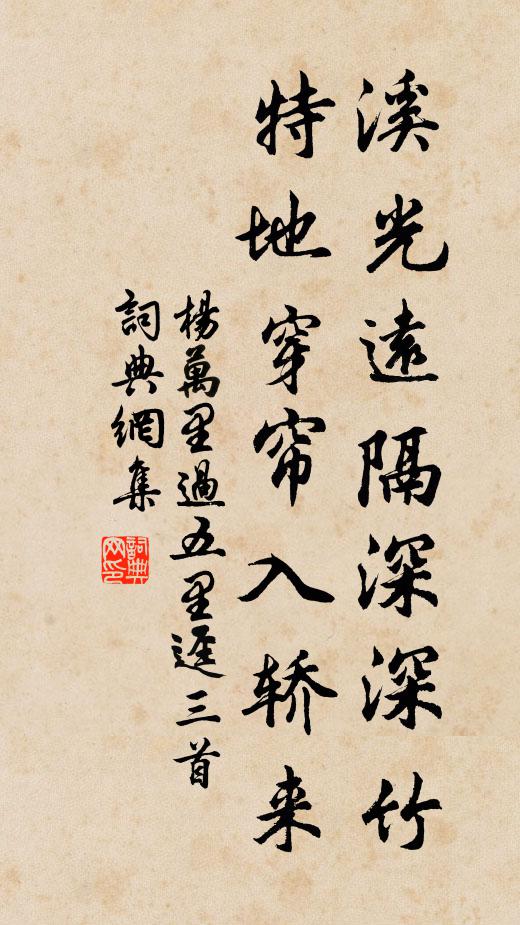 溪光遠隔深深竹
特地穿帘入轿来
楊萬里過五里逕三首
詞典網集
詞典网印